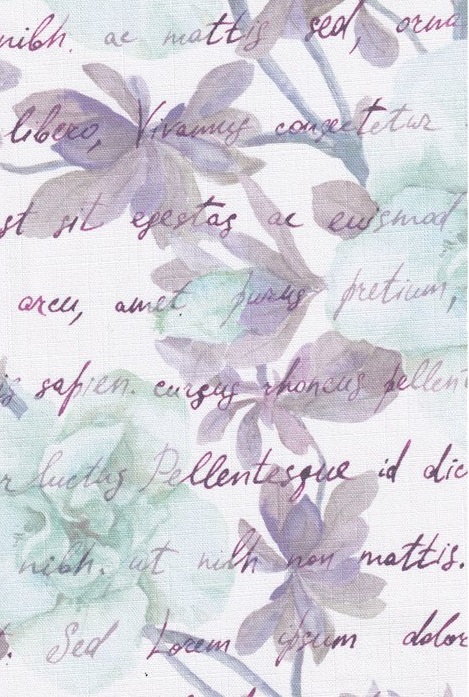 nibh. ac mattis sed, orna
libero, Vivamus consectetur
st sit egestas ac euismod
arcu, amet purus pretium,
is sapien. cursus rhoncus pellent
r luctus Pellentesque id dic
nibh. ut nibh non mattis.
t. Sed Lorem ipsum dolor